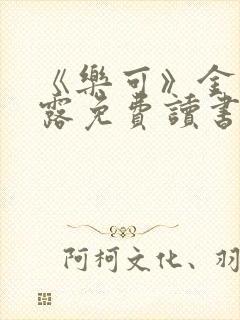 《樂可》金
露免費讀書
阿柯文化、羽